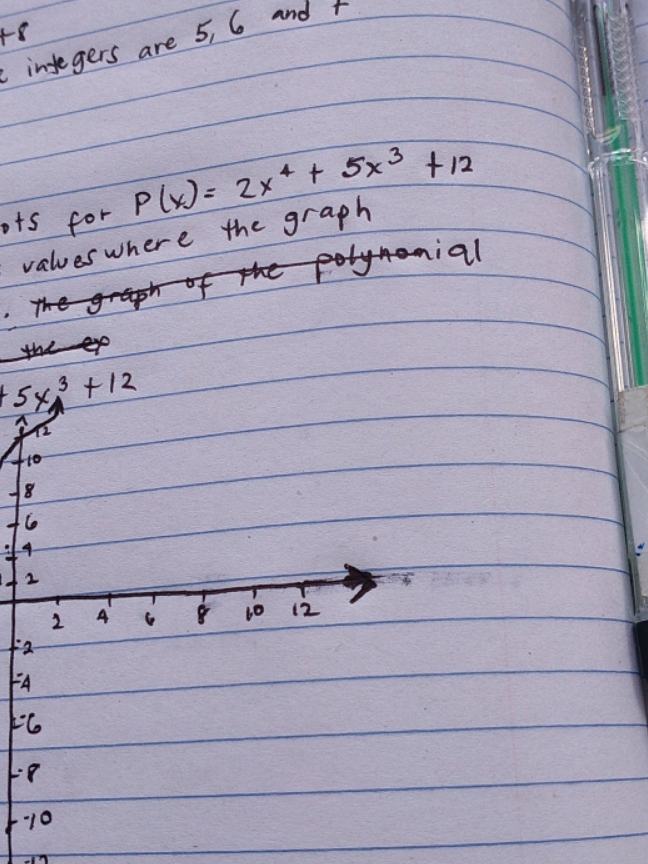 +8
integers are 5, 6 and
for P(x) = 2x⁴ + 5x³ + 12
values where the graph
. The graph of the polynomial
the ex
+ 5x³ + 12
12
10
8
6
4
2
2 4 6 8 10 12
-2
-4
-6
-8
-10